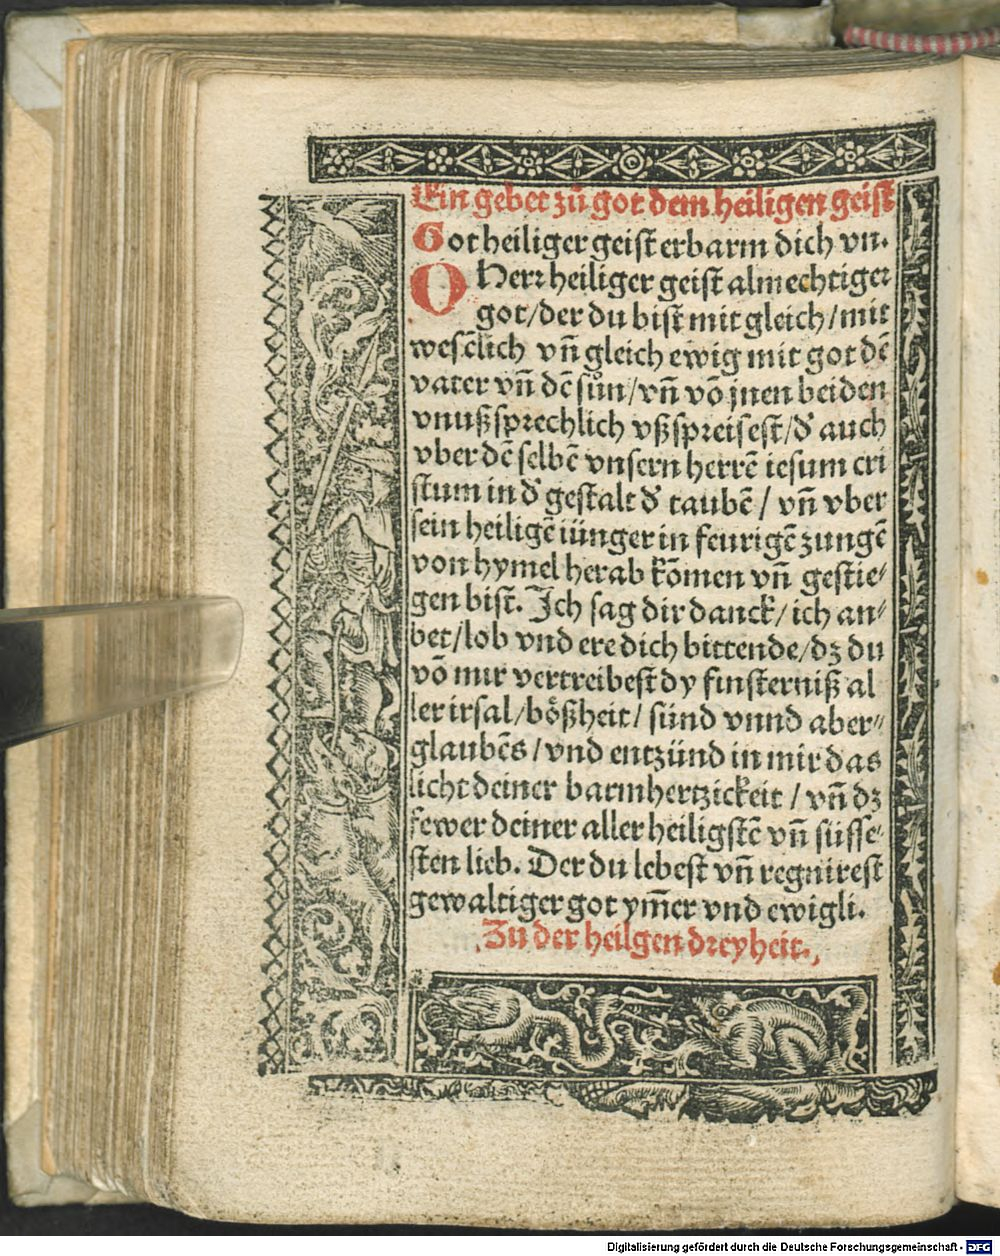 Ein gebet zů got dem heiligen geist
Got heiliger geist erbarm dich vn.
O Herr heiliger geist almechtiger
got/der du bist mit gleich/mit
wesẽlich vñ gleich ewig mit got dẽ
vater vñ dẽ sůn/vñ võ jnen beiden
vnußsprechlich vßspreisest/dʼ auch
vber dẽ selbẽ vnsern herrẽ iesum cri
stum in dʼ gestalt dʼ taubẽ / vñ vber
sein heiligẽ iünger in feurigẽ zungẽ
von hymel herab kõmen vñ gestie⸗
gen bist. Ich sag dir danck/ich an⸗
bet/lob vnd ere dich bittende/dz du
võ mir vertreibest dy finsterniß al
ler irsal/bößheit/sünd vnnd aber⸗
glaubẽs/vnd entzünd in mir das
licht deiner barmhertzickeit / vñ dz
fewer deiner aller heiligstẽ vñ süsse⸗
sten lieb. Der du lebest vñ regnirest
gewaltiger got ym̃er vnd ewigli.
Zu der heilgen dreyheit.
Digitalisierung gefördert durch die Deutsche Forschungsgemeinschaft - DFG